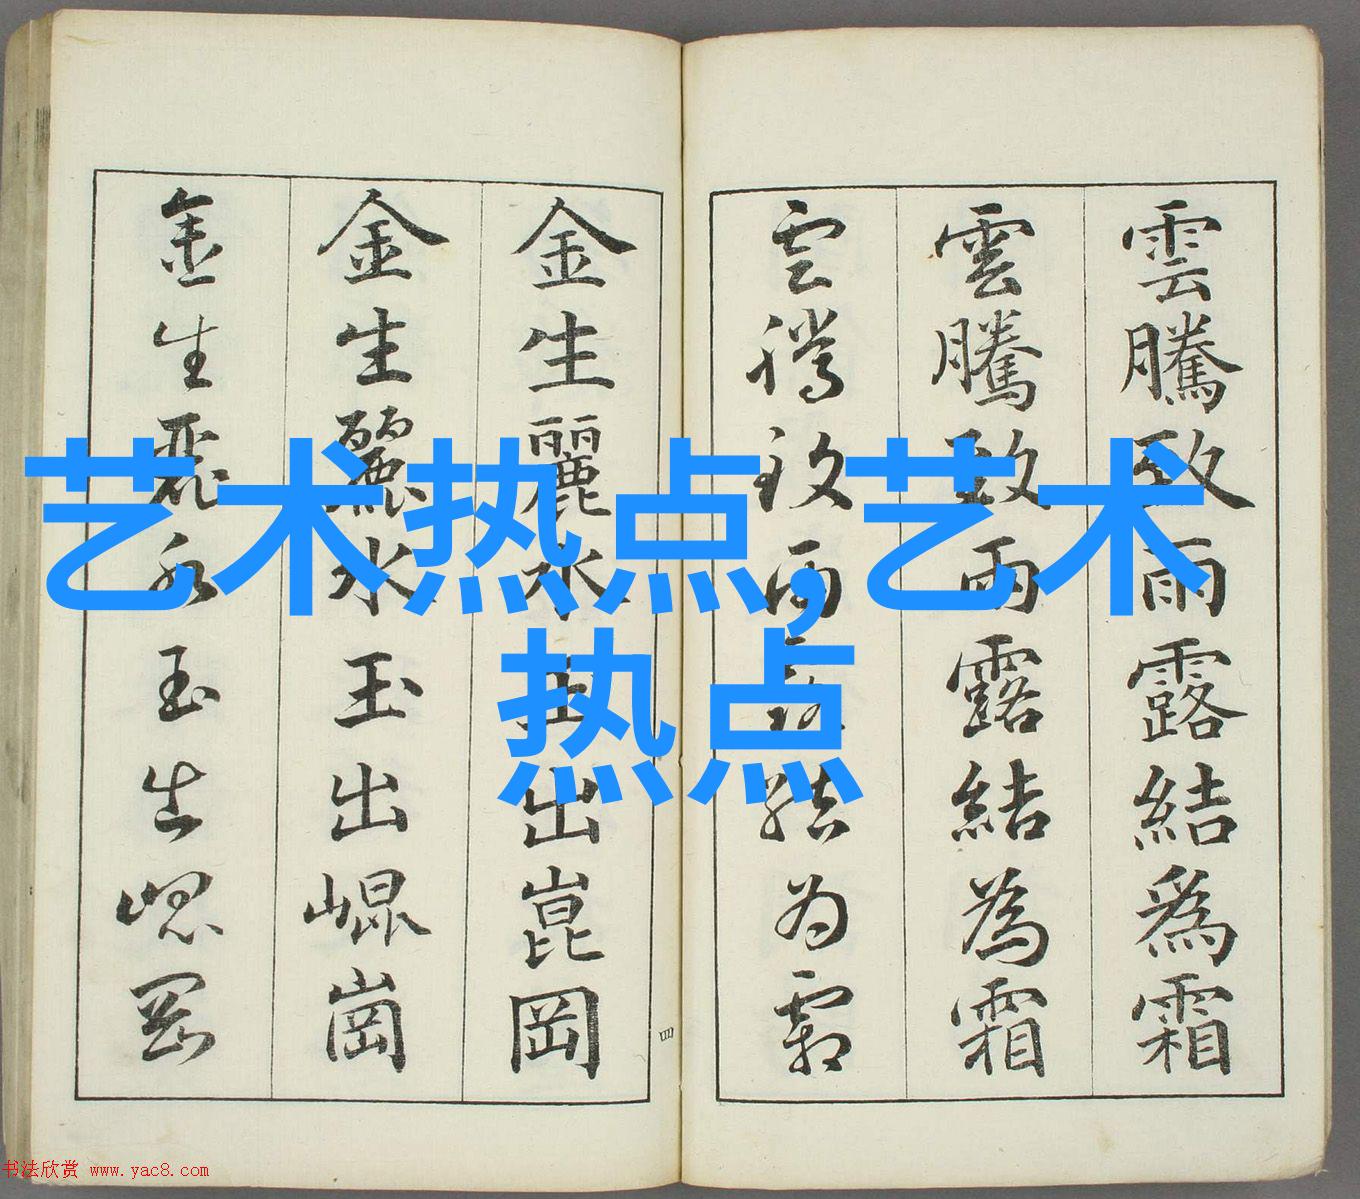 雲騰致雨露結爲霜
雲騰致雨露結為霜
雲騰致雨露結为霜
金生麗水玉出崑岡
金生麗水玉出崐崗
金生麗水玉出崐岡
四
艺术热点,艺术
热点
书法欣赏 www.yac8.com